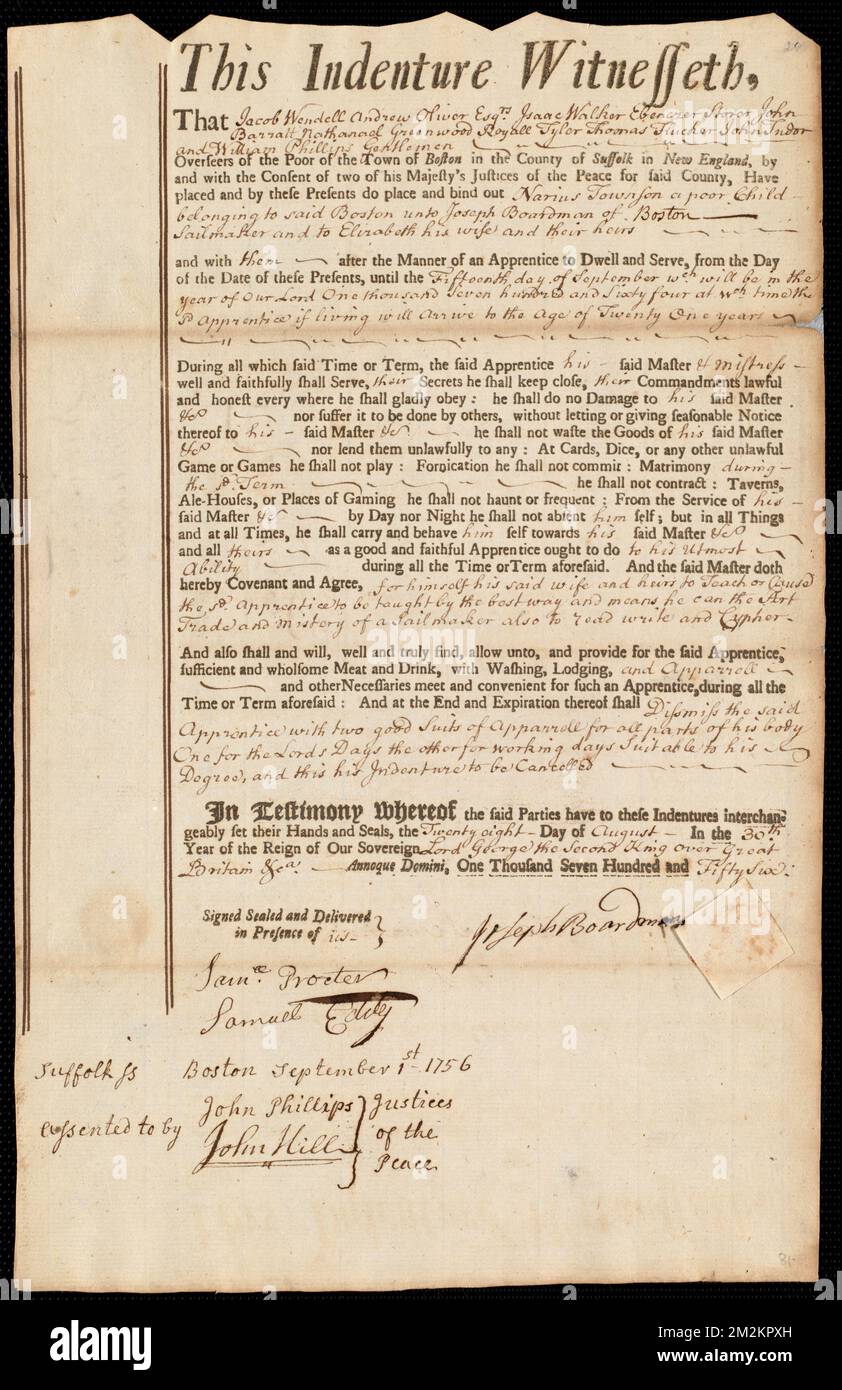 This Indenture Witnesseth,
That Jacob Wendell Andrew Oliver Esqrs. Isaac Walker Ebenezer Storer John
Barratt Nathanael Greenwood Royall Tyler Thomas Tucker John
and William Phillips Gentlemen
Overseers of the Poor of the Town of Boston in the County of Suffolk in New England, by
and with the Consent of two of his Majesty's Justices of the Peace for said County, Have
placed and by these Presents do place and bind out Narius Townson a poor Child
belonging to said Boston unto Joseph Boardman of Boston
Sailmaker and to Elizabeth his wife and their heirs
and with them after the Manner of an Apprentice to Dwell and Serve, from the Day
of the Date of these Presents, until the Fifteenth day of September wch will be in the
year of Our Lord One thousand Seven hundred and Sixty four at wch time the
sd Apprentice if living will Arrive to the Age of Twenty One years
During all which said Time or Term, the said Apprentice his said Master & Mistress
well and faithfully shall Serve, their Secrets he shall keep close, their Commandments lawful
and honest every where he shall gladly obey : he shall do no Damage to his said Master
&c nor suffer it to be done by others, without letting or giving seasonable Notice
thereof to his said Master &c. he shall not waste the Goods of his said Master
&c nor lend them unlawfully to any : At Cards, Dice, or any other unlawful
Game or Games he shall not play : Fornication he shall not commit : Matrimony during
the sd. Term he shall not contract : Taverns,
Ale-Houses, or Places of Gaming he shall not haunt or frequent : From the Service of his
said Master &c by Day nor Night he shall not absent him self ; but in all Things
and at all Times, he shall carry and behave him self towards his said Master &c
and all theirs as a good and faithful Apprentice ought to do to his Utmost
Ability during all the Time or Term aforesaid. And the said Master doth
hereby Covenant and Agree, for himself his said wife and heirs to Teach or Cause
the sd. Apprentice to be taught by the best way and means he can the Art
Trade and mistery of a Sailmaker also to read write and Cypher
And also shall and will, well and truly find, allow unto, and provide for the said Apprentice,
sufficient and wholsome Meat and Drink, with Washing, Lodging, and Apparrell
and other Necessaries meet and convenient for such an Apprentice, during all the
Time or Term aforesaid : And at the End and Expiration thereof shall Dismiss the said
Apprentice with two good Suits of Apparrell for all parts of his body
One for the Lords Days the other for working days Suitable to his
Degree, and this his Indenture to be Cancelled
In Testimony Whereof the said Parties have to these Indentures interchan-
geably set their Hands and Seals, the Twenty eight Day of August In the 30th
Year of the Reign of Our Sovereign Lord George the Second King over Great
Britain &ca. Annoque Domini, One Thousand Seven Hundred and Fifty Six.
Signed Sealed and Delivered
in Presence of us
Joseph Boardman
Saml. Procter
Samuel Eddy
Suffolk ss Boston September 1st 1756
Assented to by
John Phillips
John Hill
Justices
of the
Peace
alamy
Image ID: 2M2KPXH
www.alamy.com